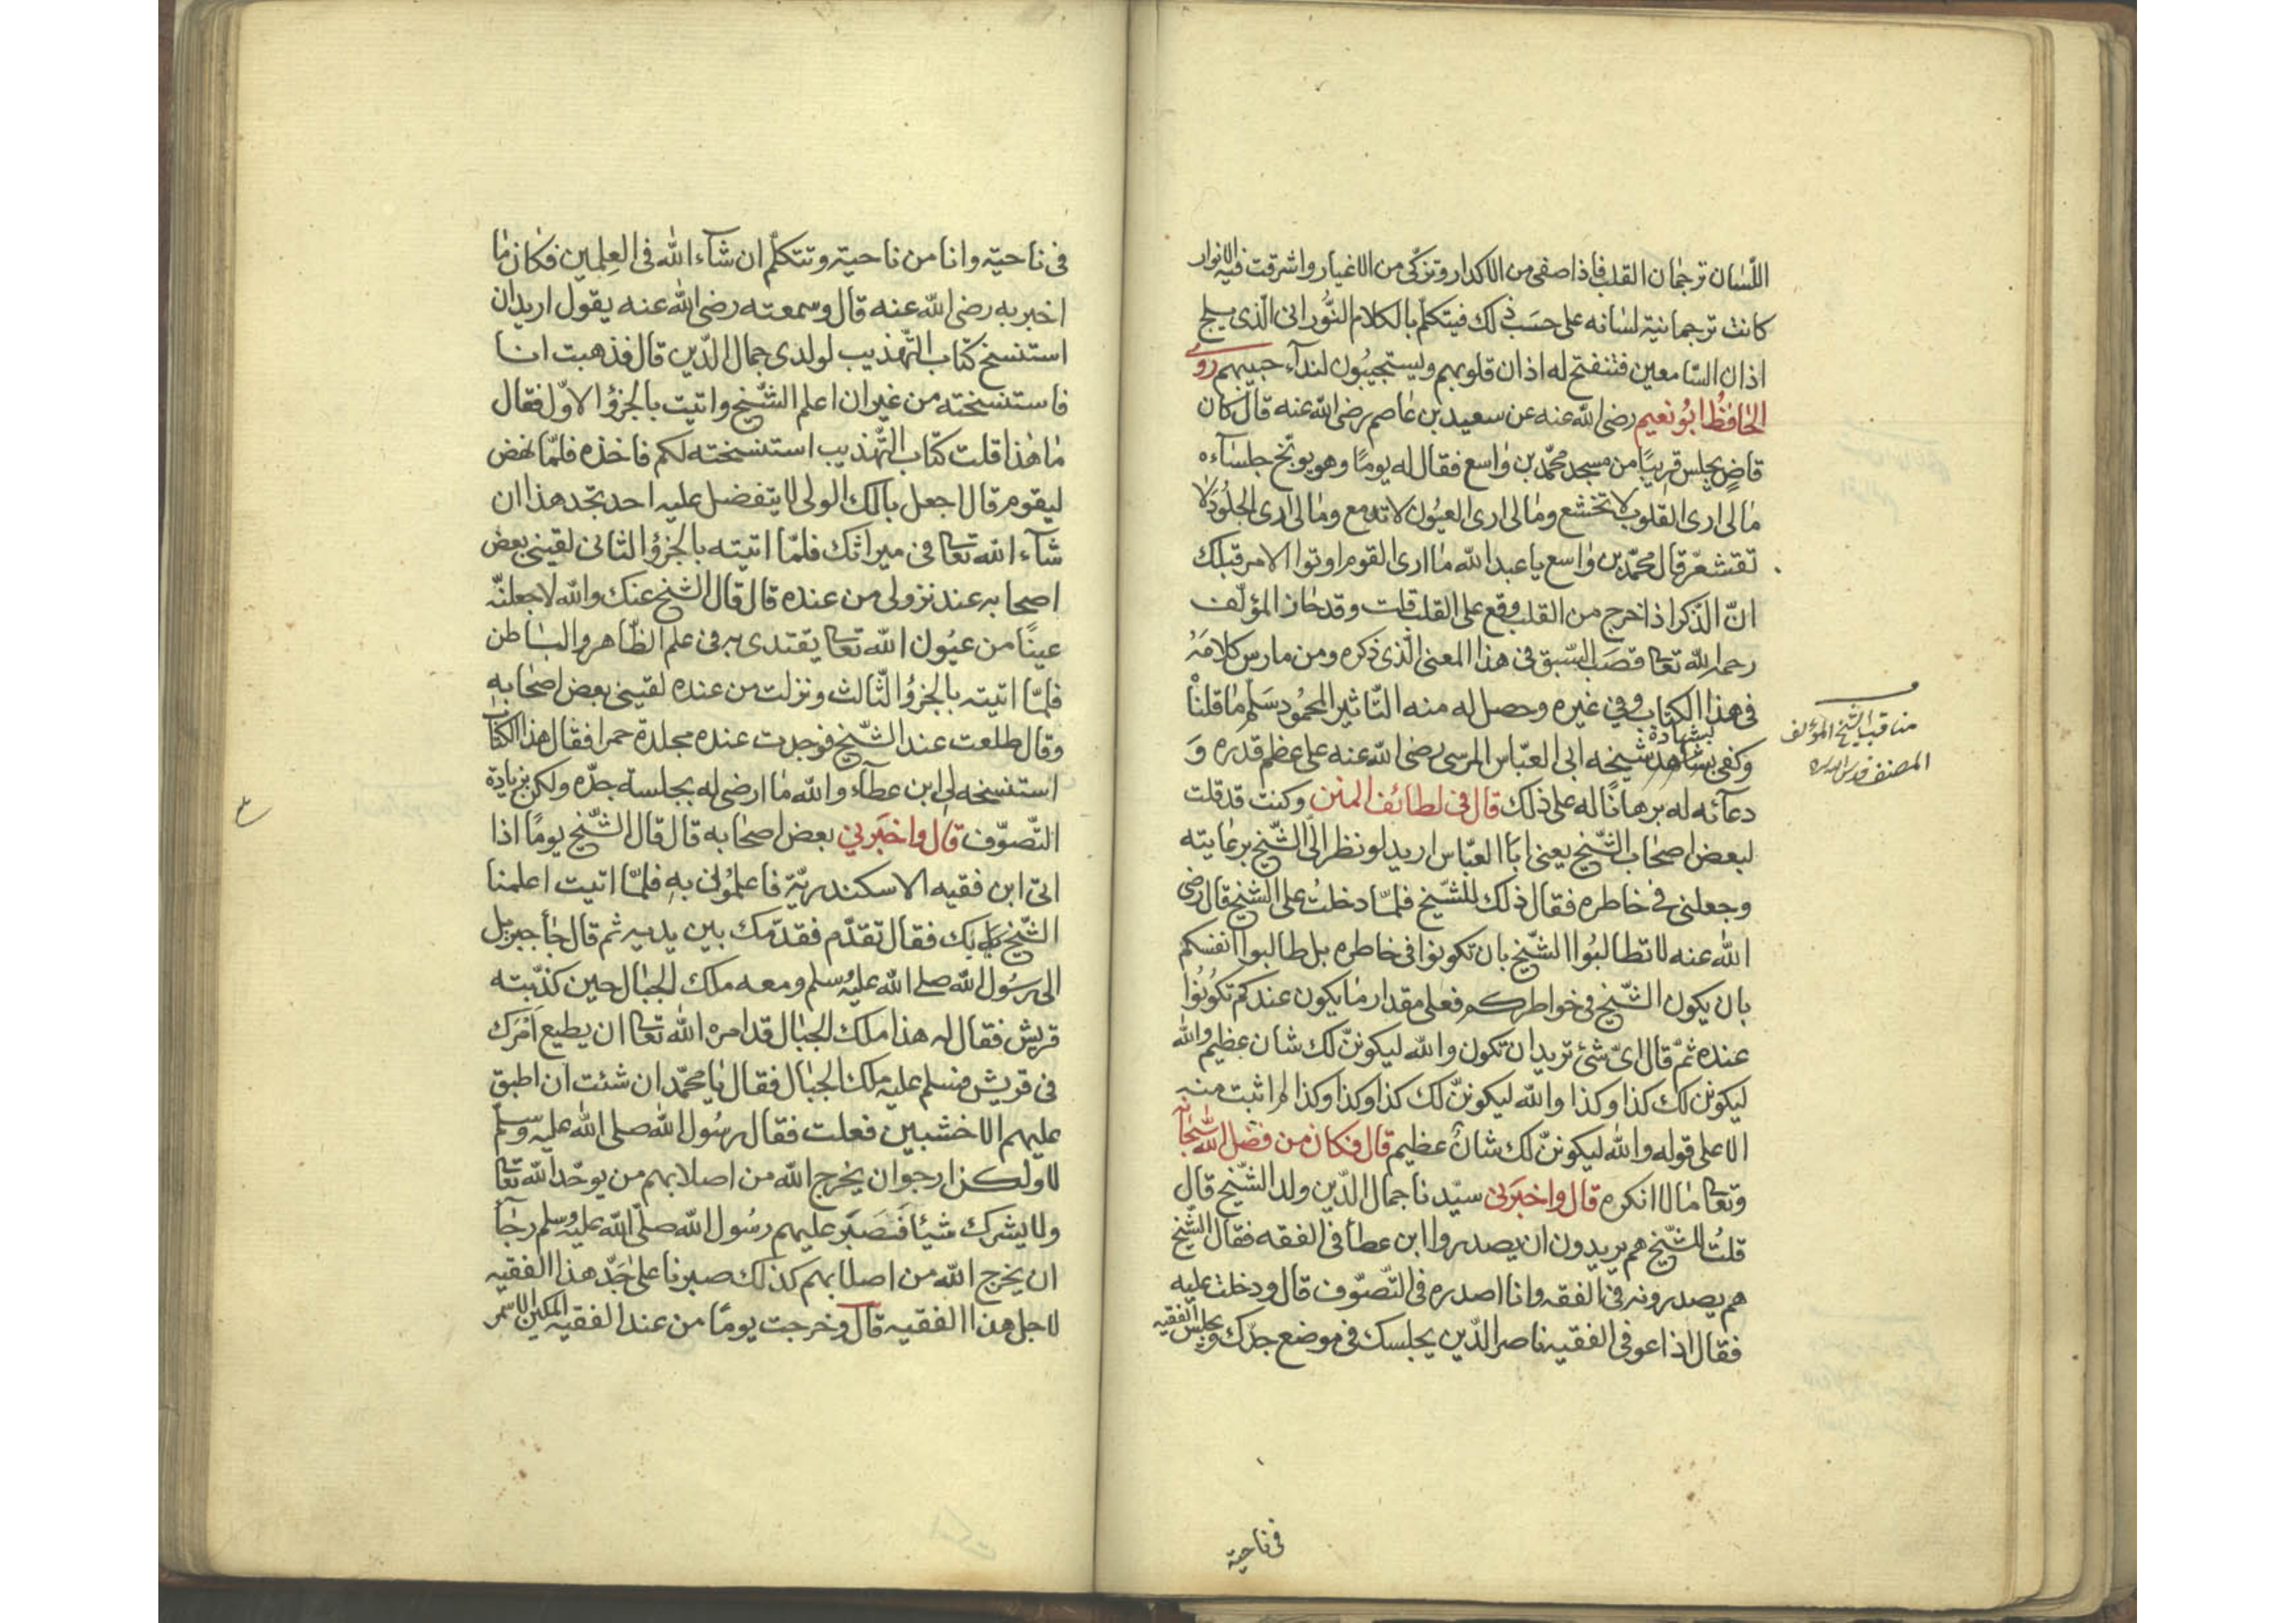 اللّسان ترجمان القلب فاذا صفى من الاكدار وتزكّى من الاغيار واشرقت فيه الانوار
كانت ترجمانية لسانه على حسب ذلك فيتكلّم بالكلام النّورانى الّذى يلج
اذان السّامعين فتنفتح له اذان قلوبهم ويستجيبون لنداء حبيبهم روى
الحافظ ابو نعيم رضى الله عنه عن سعيد بن عاصم رضى الله عنه قال كان
قاضٍ يجلس قريبًا من مسجد محمّد بن واسع فقال له يومًا وهو يوبّخ جلساءه
مالى ارى القلوب لا تخشع ومالى ارى العيون لا تدمع ومالى ارى الجلود لا
تقشعرّ قال محمّد بن واسع يا عبد الله ما ارى القوم اوتوا الامر قبلك
انّ الذّكر اذا خرج من القلب وقع على القلب قلت وقد حاز المؤلّف
رحمه الله تعا قصب السّبق فى هذا المعنى الّذى ذكره ومن مارس كلامه
فى هذا الكتاب وفى غيره وحصل له منه التّاثير المحمود سلّم ما قلنا
وكفى بشهادة شيخه ابى العبّاس المرسى رضى الله عنه على عظم قدره و
مناقب الشيخ المؤلف
المصنف قدس الله سره
دعآئه له برهانًا له على ذلك قال فى لطائف المنن وكنت قد قلت
لبعض اصحاب الشّيخ يعنى ابا العبّاس اريد لو نظر الىّ الشّيخ برعايته
وجعلنى فى خاطره فقال ذلك للشّيخ فلمّا دخلت على الشّيخ قال رضى
الله عنه لا تطالبوا الشّيخ بان تكونوا فى خاطره بل طالبوا انفسكم
بان يكون الشّيخ فى خواطركم فعلى مقدار ما يكون عندكم تكونوا
عنده ثمّ قال اىّ شئ تريد ان تكون والله ليكوننّ لك شان عظيم والله
ليكوننّ لك كذا وكذا والله ليكوننّ لك كذا وكذا وكذا لم اثبت منه
الا على قوله والله ليكوننّ لك شانٌ عظيم قال فكان من فضل الله سبحانه
وتعا ما لا انكره قال واخبرنى سيّدنا جمال الدّين ولد الشّيخ قال
قلت للشّيخ هم يريدون ان يصدروا ابن عطآ فى الفقه فقال الشّيخ
هم يصدرونه فى الفقه وانا اصدره فى التّصوّف قال ودخلت عليه
فقال اذا عوفى الفقيه ناصر الدّين يجلسك فى موضع جدّك ويجلس الفقيه
فى ناحية
فى ناحيّة وانا من ناحية وتتكلّم ان شآء الله فى العلمين فكان ما
اخبر به رضى الله عنه قال وسمعته رضى الله عنه يقول اريد ان
استنسخ كتاب التّهذيب لولدى جمال الدّين قال فذهبت انا
فاستنسخته من غير ان اعلم الشّيخ واتيت بالجزؤ الاوّل فقال
ما هذا قلت كتاب التّهذيب استنسخته لكم فاخذه فلمّا نهض
ليقوم قال اجعل بالك الولى لا يتفضل عليه احد تجد هذا ان
شآء الله تعا فى ميراثك فلمّا اتيته بالجزؤ الثانى لقينى بعض
اصحابه عند نزولى من عنده قال قال الشّيخ عنك والله لاجعلنّه
عينًا من عيون الله تعا يقتدى به فى علم الظّاهر والباطن
فلمّا اتيته بالجزؤ الثّالث ونزلت من عنده لقينى بعض اصحابه
وقال طلعت عند الشّيخ فوجدت عنده مجلدة حمرا فقال هذا الكتاب
استنسخه لى ابن عطآء والله ما ارضى له بجلسة جدّه ولكن بزيادة
التّصوّف قال واخبرنى بعض اصحابه قال قال الشّيخ يومًا اذا
٣
اتى ابن فقيه الاسكندريّة فاعلمونى به فلمّا اتيت اعلمنا
الشّيخ بك فقال تقدّم فقدّمك بين يديه ثم قال جآ جبريل
الى رسول الله صلى الله عليه وسلم ومعه ملك الجبال حين كذّبته
قريش فقال له هذا ملك الجبال قد امره الله تعا ان يطيع امرك
فى قريش فسلم عليه ملك الجبال فقال يا محمّد ان شئت ان اطبق
عليهم الاخشبين فعلت فقال رسول الله صلى الله عليه وسلّم
لا ولكن ارجو ان يخرج الله من اصلابهم من يوحّد الله تعا
ولا يشرك شيئا فصبر عليهم رسول الله صلّى الله عليه وسلم رجآ
ان يخرج الله من اصلابهم كذلك صبرنا على جدّ هذا الفقيه
لاجل هذا الفقيه قال وخرجت يومًا من عند الفقيه المكين الاسمر